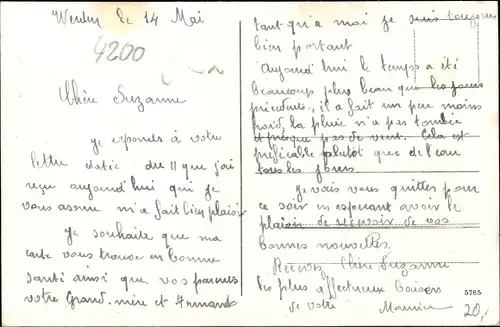 Werden le 14 Mai
4200
Chère Suzanne
Je reponds à votre
lettre datée du 11 que j'ai
reçu aujourd'hui qui je
vous assure m'a fait bien plaisir
Je souhaite que ma
carte vous trouve en bonne
santé ainsi que vos parents
votre Grand-mère et Armande
tant qu'a moi je suis toujours
bien portant
Aujourd'hui le temps a été
beaucoup plus beau que les jours
précedents, il a fait un peu moins
froid, la pluie n'a pas tombée
et presque pas de vent. Cela est
préférable plutôt que de l'eau
tous les jours.
Je vais vous quitter pour
ce soir en esperant avoir le
plaisir de recevoir de vos
bonnes nouvelles.
Recevez Chère Suzanne
les plus affectueux baisers
de votre Maurice
5765
20,-